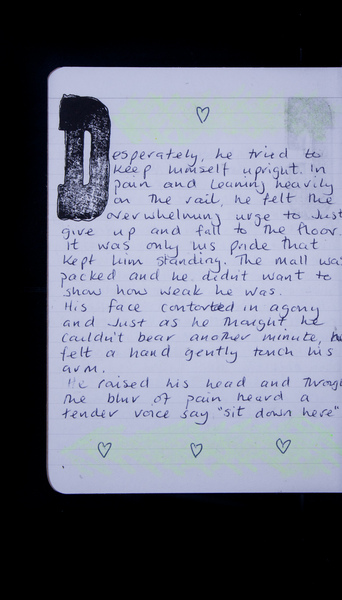 Desperately, he tried to
keep himself upright. In
pain and leaning heavily
on the rail, he felt the
overwhelming urge to just
give up and fall to the floor.
It was only his pride that
kept him standing. The mall was
packed and he didn't want to
show how weak he was.
His face contorted in agony
and just as he thought he
couldn't bear another minute, he
felt a hand gently touch his
arm.
He raised his head and through
the blur of pain heard a
tender voice say "sit down here"